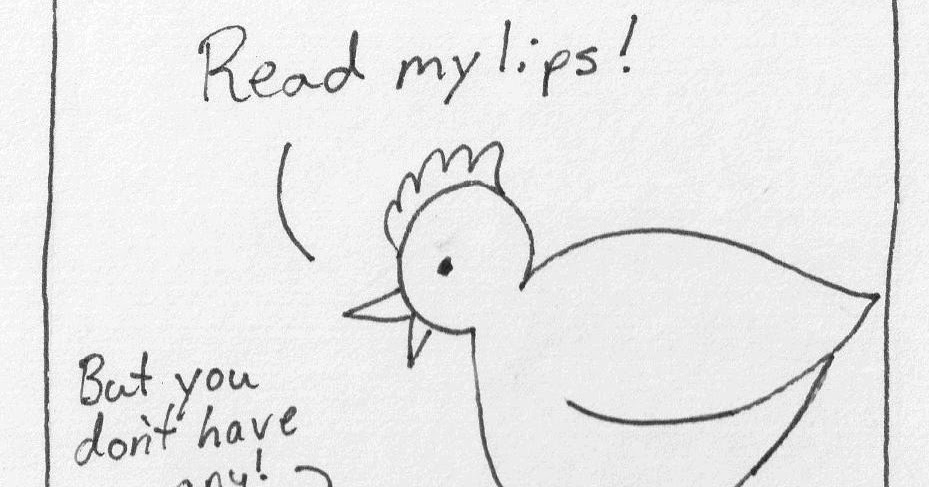 Read my lips!
But you
don't have
any!